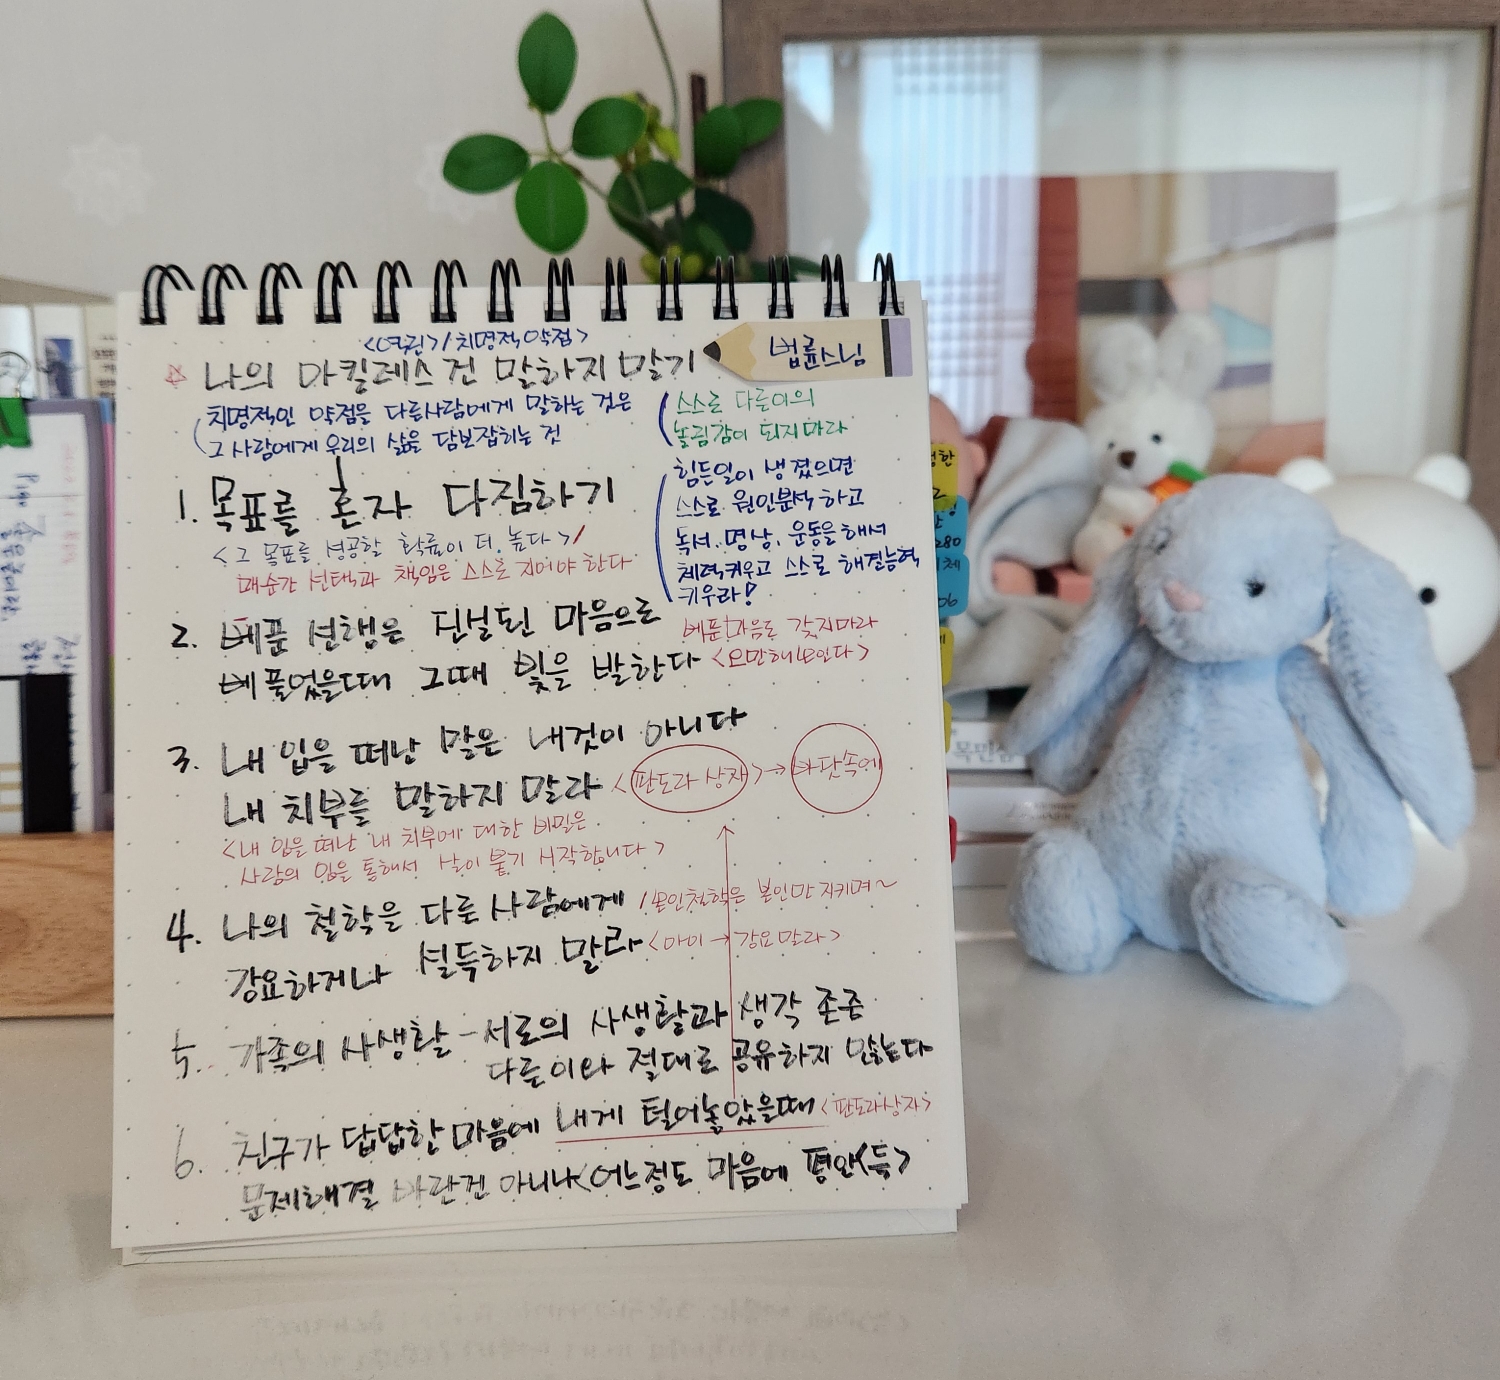 <역린>/치명적약점>
☆ 나의 아킬레스건 말하지 말기
법륜스님
치명적인 약점을 다른사람에게 말하는 것은
그 사람에게 우리의 삶을 담보잡히는 것
스스로 다른이의
놀림감이 되지마라
힘든일이 생겼으면
스스로 원인분석하고
독서. 명상, 운동을해서
체력키우고 스스로 해결능력
키우라!
1. 목표를 혼자 다짐하기
<그 목표를 성공할 확률이 더.높다>/
매순간 선택과 책임은 스스로 지어야 한다
2. 베푼 선행은 진심된 마음으로
베풀었을때 그때 빛을 발한다
베푼마음도 갖지마라
<오만해보인다>
3. 내 입을 떠난 말은 내것이 아니다
내 치부를 말하지 말라 <판도라 상자>→바닷속에
<내 입을 떠난 내 치부에 대한 비밀은
사람의 입을 통해서 살이 붙기 시작합니다>
4. 나의 철학을 다른 사람에게 /본인철학은 본인만 지키며~
강요하거나 설득하지 말라 <아이→강요말라>
5. 가족의 사생활 - 서로의 사생활과 생각 존중
다른이와 절대로 공유하지 않는다
6. 친구가 답답한 마음에 내게 털어놓았을때 <판도라상자>
문제해결 바란건 아니니<어느정도 마음에 평안(등>
280
06